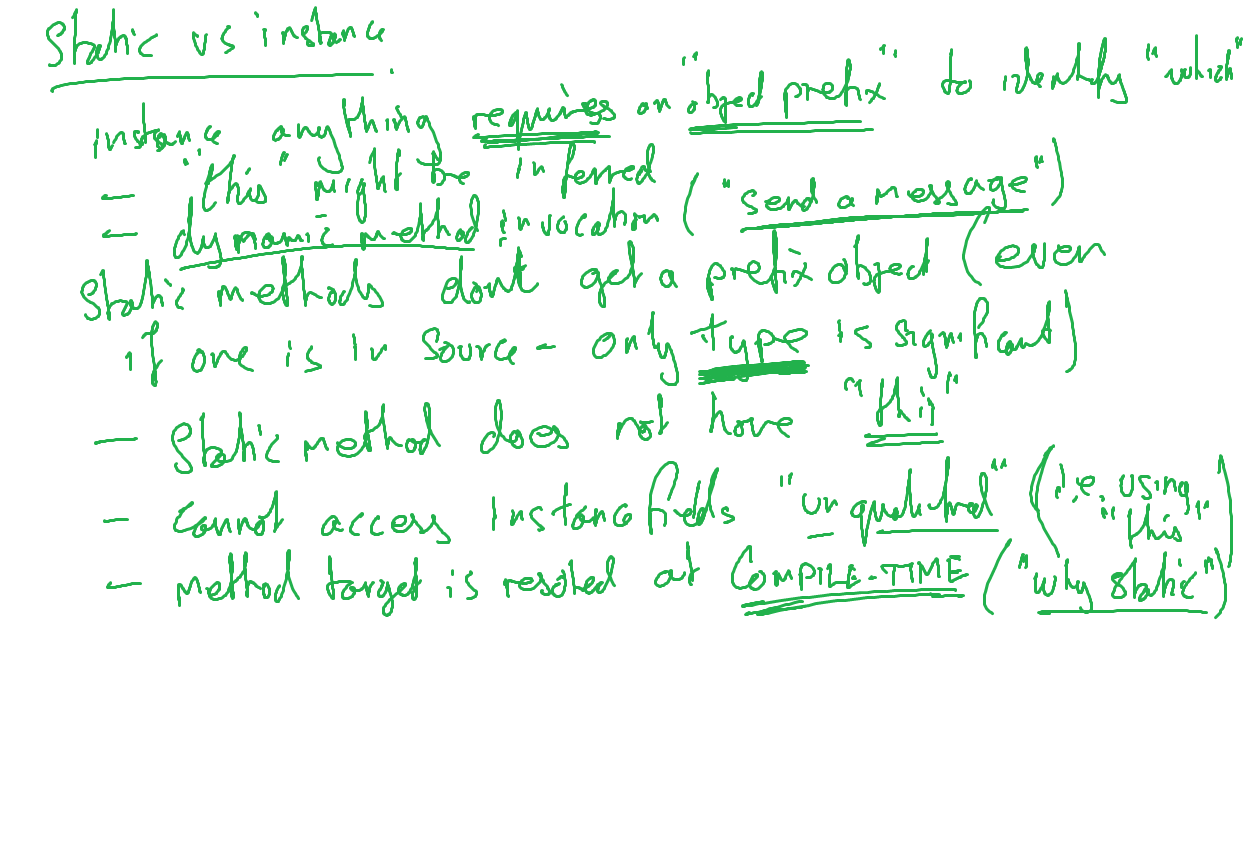 Static vs instance
instance anything requires an "object prefix" to identify "which"
- "this" might be inferred
- dynamic method invocation ("send a message")
Static methods dont get a prefix object (even
if one is in source - only type is significant)
- Static method does not have "this"
- cannot access instance fields "unqualified" (i.e. using "this")
- method target is resolved at COMPILE-TIME ("why static")